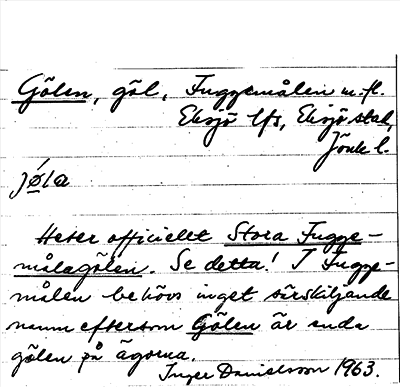 Gölen, göl, Fuggemålen m.fl.
Eksjö lfs, Eksjö stad,
Jönk l.
jø´la
Heter officiellt Stora Fugge-
målagölen. Se detta! I Fugge-
målen behövs inget särskiljande
namn eftersom Gölen är enda
gölen på ägorna.
Inger Danielsson 1963.